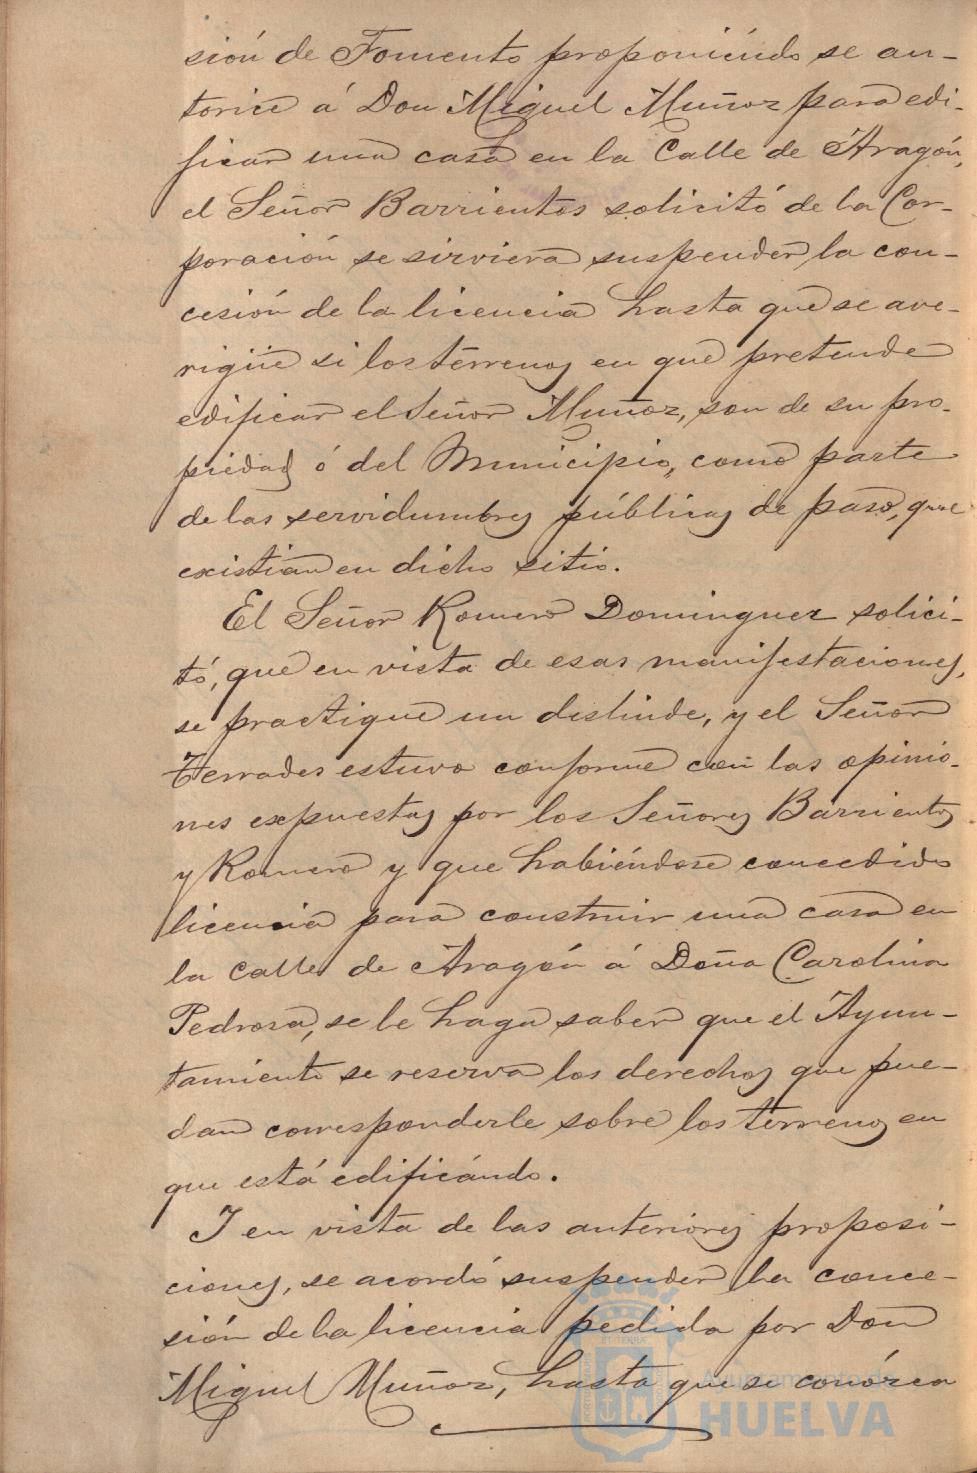 sión de Fomento proponiéndo se au-
torice á Don Miguel Muñoz para edi-
ficar una casa en la Calle de Aragón,
el Señor Barrientos solicitó de la Cor-
poración se sirviera suspender la con-
cesión de la licencia hasta que se ave-
rigüe si los terrenos en que pretende
edificar el Señor Muñoz, son de su pro-
piedad ó del Municipio, como parte
de las servidumbres públicas de paso, que
existían en dicho sitio.
El Señor Romero Dominguez solici-
tó, que en vista de esas manifestaciones,
se practique un deslinde, y el Señor
Terrades estuvo conforme con las opinio-
nes expuestas por los Señores Barrientos
y Romero y que habiéndose concedido
licencia para construir una casa en
la calle de Aragón á Doña Carolina
Pedrosa, se le haga saber que el Ayun-
tamiento se reserva los derechos que pue-
dan corresponderle sobre los terrenos en
que está edificándo.
Y en vista de las anteriores proposi-
ciones, se acordó suspender la conce-
sión de la licencia pedida por Don
Miguel Muñoz, hasta que se conózca
Ayuntamiento de
HUELVA